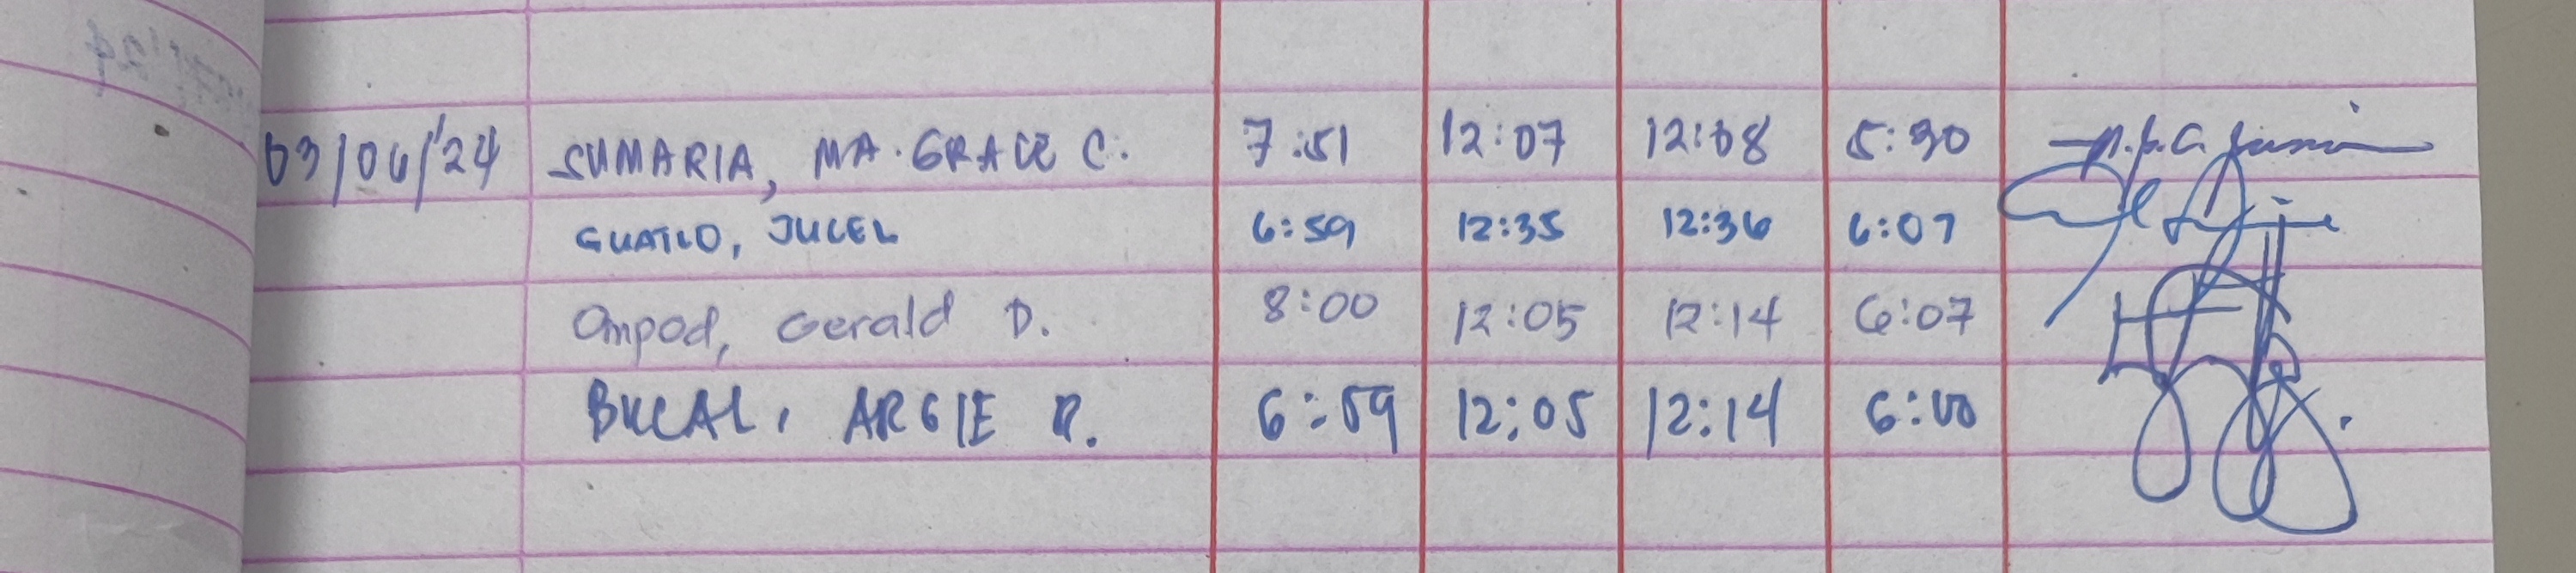 03/06/'24 SUMARIA, MA. GRACE C. 7:51 12:07 12:08 5:30
GUATLO, JUCEL 6:59 12:35 12:36 6:07
Ompod, Gerald D. 8:00 12:05 12:14 6:07
BUCAL, ARGIE R. 6:59 12:05 12:14 6:00